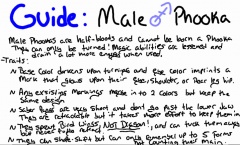 Guide: Male Phooka
Male Phookas are half-bloods and cannot be born a Phooka
They can only be turned! Magic abilities are lessened and
drain a lot more energy when used.
Traits:
Base Color darkens upon turning and Eye color imprints a
Mark that glows in the dark on their Flank, Shoulder, or Rear leg hip.
Any existing Markings fade in to 2 colors but keep the
same design
Saber Fangs are very short and don't go past the lower Jaw
They are retractable but it takes more effort to keep them in
They sprout Bird Wings, NOT Dragon! and can tuck them away
They can Shape-Shift but can only
up to 5 forms
not counting their main.